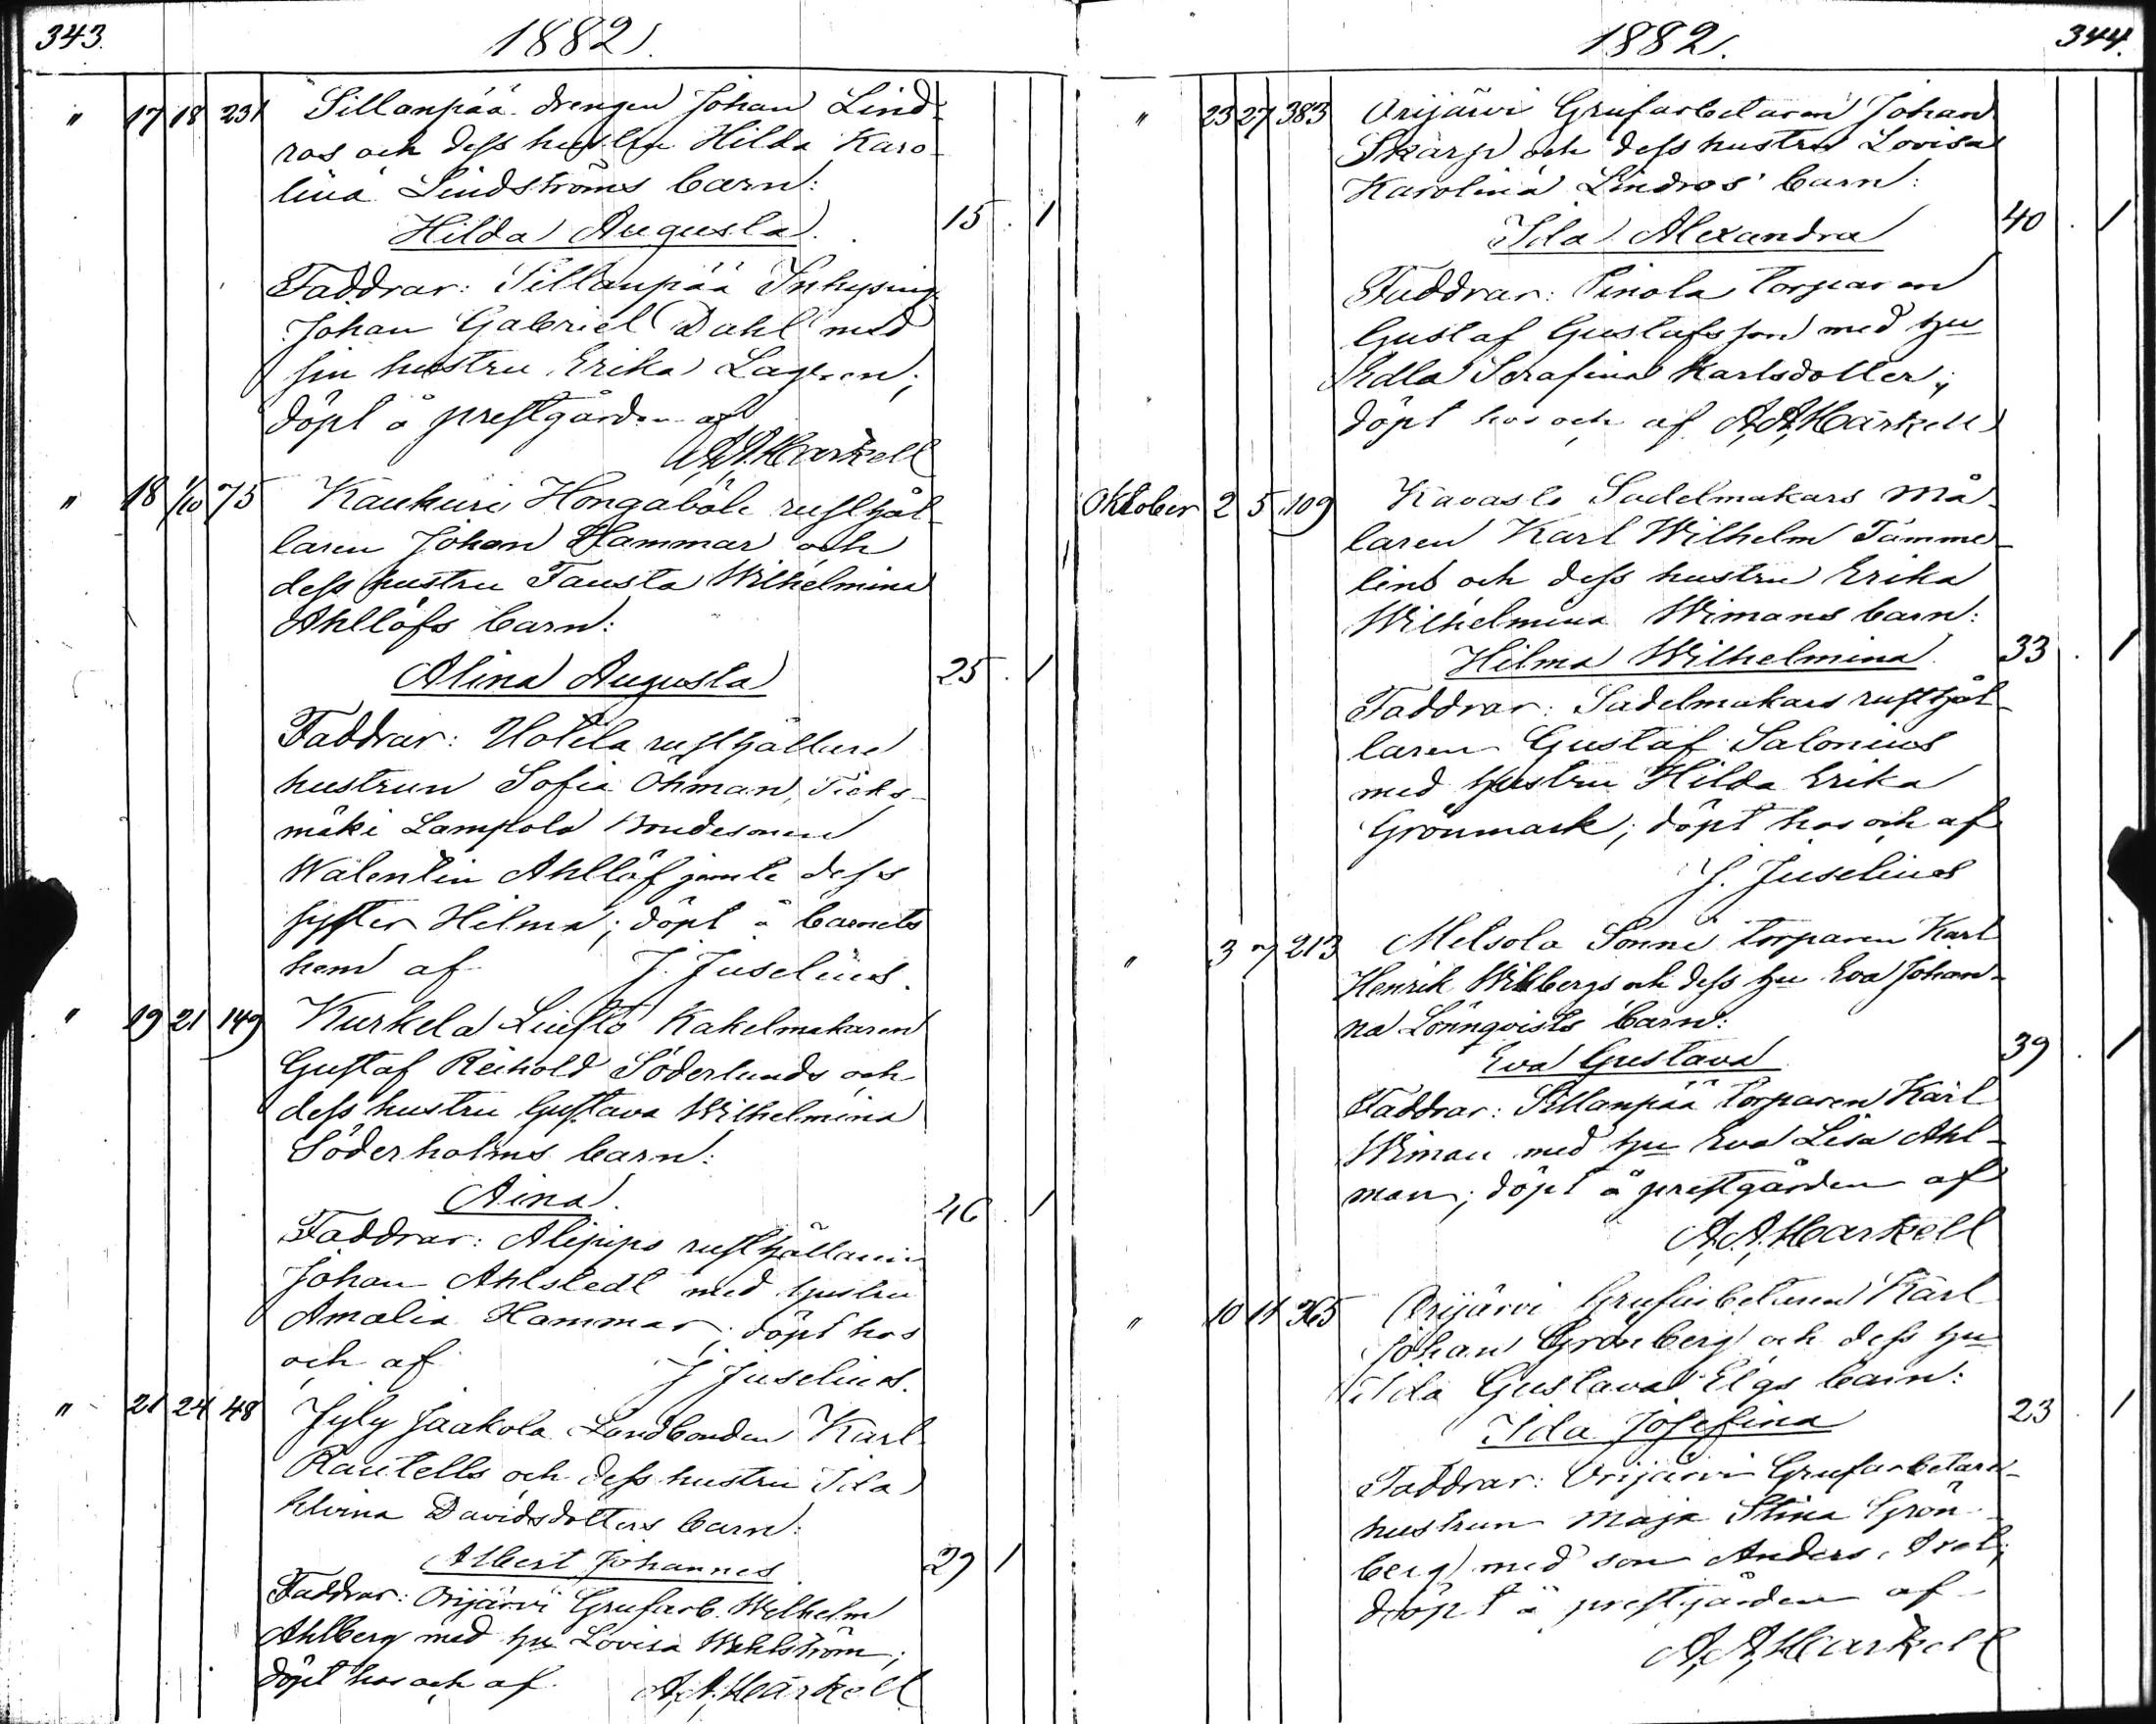 343.
1882.
" 17 18 231 Sillanpää drengen Johan Lind-
ros och dess hustru Hilda Karo-
lina Lindströms barn:
Hilda Augusta. 15. 1
Faddrar: Sillanpää Inhysing
Johan Gabriel Dahl med
sin hustru Erika Lagren;
döpt å prestgården af
A. A. Härkell
" 18 1/10 75 Kaukuri Hongaböle rusthål-
laren Johan Hammar och
dess hustru Fausta Wilhelmina
Ahllöfs barn:
Alina Augusta 25. 1
Faddrar: Uotila rusthållare
hustrun Sofia Öhman,
mäki Lampola Bondesonen
Walentin Ahllöf jemte dess
syster Hilma; döpt å barnets
hem af J. Juselius.
" 19 21 149 Kurkela Kakelmakaren
Gustaf Reihold Söderlunds och
dess hustru Gustava Wilhelmina
Söderholms barn:
Aina. 46. 1
Faddrar: rusthållaren
Johan Ahlstedt med hustru
Amalia Hammar; döpt hos
och af J. Juselius.
" 21 24 48 Jyly Jaakola Landbonden Karl
Rautells och dess hustru Ida
Elvina Davidsdotters barn:
Albert Johannes 29 1
Faddrar: Orijärvi Grufarb. Wilhelm
Ahlberg med hu Lovisa Wahlström;
döpt hos och af. A. A. Härkell
1882.
344.
" 23 27 383 Orijärvi Grufarbetaren Johan
Skarp och dess hustru Lovisa
Karolina Lindros' barn:
Ida Alexandra 40. 1
Faddrar: Pinola torparen
Gustaf Gustafsson med hu
Edla Serafina Karlsdotter;
döpt hos och af A. A. Härkell
Oktober 2 5 109 Kavasto Sadelmakars må-
laren Karl Wilhelm Tamme-
lins och dess hustru Erika
Wilhelmina Wimans barn:
Hilma Wilhelmina 33. 1
Faddrar: Sadelmakars rusthål-
laren Gustaf Salonius
med hustru Hilda Erika
Grönmark; döpt hos och af
J. Juselius
" 3 7 213 Melsola Sonni torparen Karl
Henrik Wikbergs och dess hu Eva Johan-
na Lönnqvists barn:
Eva Gustava 39. 1
Faddrar: Sillanpää torparen Karl
Wiman med hu Eva Lisa Ahl-
man; döpt å prestgården af
A. A. Härkell
" 10 11 365 Orijärvi Grufarbetaren Karl
Johan Grönberg och dess hu
Ida Gustava Elgs barn:
Ida Josefina 23. 1
Faddrar: Orijärvi Grufarbetare-
hustrun Maja Stina Grön-
berg med son Anders Axel;
döpt å prestgården af
A. A. Härkell